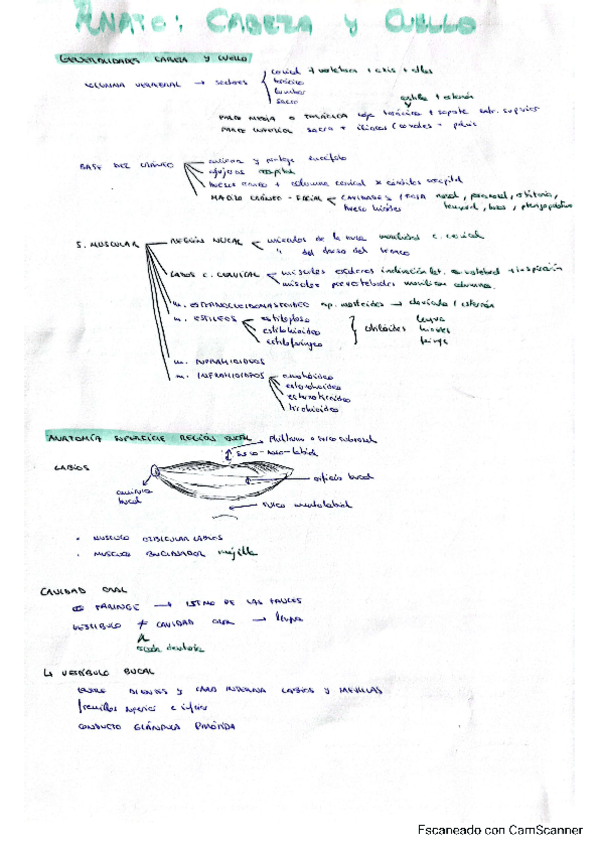 ANATO: CABEZA Y CUELLO
GENERALIDADES CABEZA Y CUELLO
COLUMNA VERTEBRAL → sectores
cervical 7 vertebras + axis + atlas
torácico
lumbar
sacro
costillas + esternón
PARTE MEDIA O TORÁCICA caja torácica + soporte extr. superior
PARTE INFERIOR sacro + ilíacos / coxales = pelvis
BASE DEL CRÁNEO
y protege encéfalo
agujeros occipital
+ columna cervical x cóndilos occipital
MACIZO CRÁNEO - FACIAL CAVIDADES / FOSA nasal, paranasal, orbitaria,
hueso hioides temporal, bucal, pterigopalatina
S. MUSCULAR
REGIÓN NUCAL músculos de la nuca c. cervical
" del dorso del tronco
LADOS C. CERVICAL músculos escalenos inclinación lat. vertebral + inspiración
músculos prevertebrales columna.
m. ESTERNOCLEIDOMASTOIDEO ap. mastoides → clavícula / esternón
m. ESTILEOS
estilogloso
estilohioideo
estilofaríngeo
lengua
hioides
faringe
m. INFRAHIOIDEOS
omohioideo
esternohioideo
esternotiroideo
tirohioideo
ANATOMÍA SUPERFICIE REGIÓN BUCAL
Philtrum o surco subnasal
surco-naso-labial
LABIOS
orificio bucal
comisura bucal
surco mentolabial
• MUSCULO ORBICULAR LABIOS
• MUSCULO BUCCINADOR mejilla
CAVIDAD ORAL
FARINGE → ISTMO DE LAS FAUCES
VESTIBULO + CAVIDAD ORAL → lengua
arcada dentaria
↳ VESTÍBULO BUCAL
ENTRE DIENTES Y CARA INTERNA LABIOS Y MEJILLAS
frenillos superior e inferior
CONDUCTO GLÁNDULA PARÓTIDA
Escaneado con CamScanner